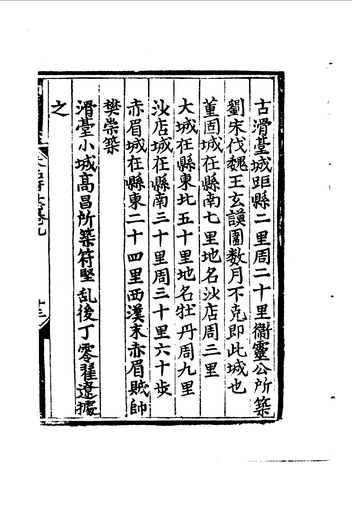 古滑臺城距縣二里周二十里衛靈公所築
劉宋伐魏王玄謨圍數月不克即此城也
董固城在縣南七里地名沙店周三里
大城在縣東北五十里地名牡丹周九里
沙店城在縣南三十里周三十里六十步
赤眉城在縣東二十四里西漢末赤眉賊帥
樊崇築
滑臺小城高昌所築符堅乱後丁零翟遼據
之